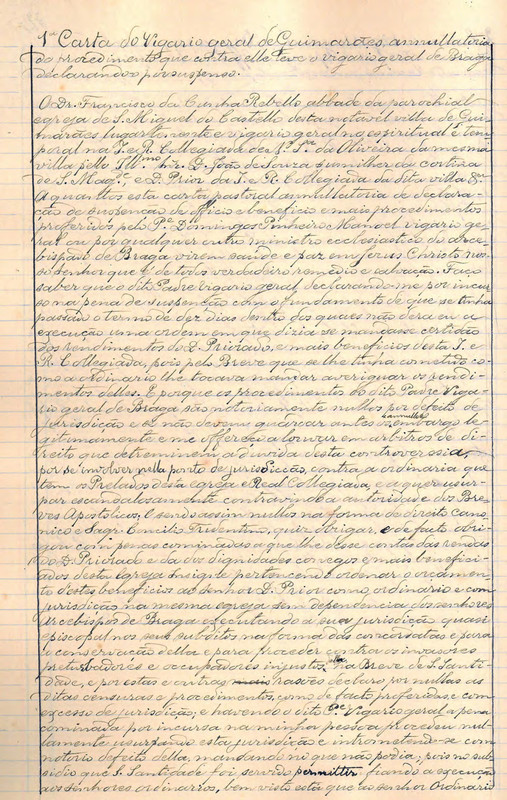 1ª Carta do Vigario geral de Guimarães, annullatoria
do procedimento que contra elle teve o vigario geral de Braga
declarando o por suspenso.
O Dr. Francisco da Cunha Rebello abbade da parochial
egreja de S. Miguel do Castello desta notavel villa de Gui-
marães lugartenente e vigario geral no espiritual e tem-
poral na I. e R. Collegiada de N. Snrª da Oliveira da mesma
villa pello Illmo Snr. D. João de Souza sumilher da cortina
de S. Magde, e D. Prior da I. e R. Collegiada da dita villa &
A quantos esta carta pastoral annullatoria de declara-
ção de suspenção de officio e beneficio e mais procedimentos
proferidos pelo Pe Domingos Pinheiro Manoel vigario ge-
ral ou por qualquer outro ministro ecclesiastico do arce-
bispado de Braga virem saude e paz em Jesus Christo nos-
so senhor que é de todos verdadeiro remedio e salvação. Faço
saber que o dito Padre vigario geral, declarando-me por incur-
so na pena de suspenção com o fundamento de que se tinha
passado o termo de dez dias dentro dos quaes não dera eu a
execução uma ordem em que dizia se mandasse certidão
dos rendimentos do D. Priorado, e mais beneficios desta I. e
R. Collegiada, pois pelo Breve que se lhe tinha comettido co-
mo a ordinario lhe tocava mandar averiguar os rendi-
mentos delles. E porque os procedimentos do dito Padre Viga-
rio geral de Braga são notoriamente nullos por defeito de
jurisdição e se não devem guardar antes annullar embargo le-
gitimamente e me offereci a louvar em arbitros de di-
reito que determinem a duvida desta controversia,
por se involver nella ponto de jurisdicção, contra a ordinaria que
tem os Prelados desta egreja e Real Collegiada, e a querer usur-
par escandalosamente contravindo a autoridade dos Bre-
ves Apostolicos, e sendo assim nullos na forma do direito cano-
nico e Sagr. Concilio Tridentino, quiz obrigar, e de facto obri-
gou com penas cominadas a que lhe desse conta das rendas
do D. Priorado e da dos dignidades conegos e mais benefici-
ados desta Egreja Insigne pertencendo ordenar o orçamen-
to destes beneficios ao senhor D. Prior como ordinario e com
jurisdição na mesma egreja sem dependencia dos senhores
Arcebispos de Braga executando a sua jurisdição quasi
episcopal nos seus subditos na forma das concordatas e para
a conservação della e para proceder contra os invasores
perturbadores e occupadores injustos, da Breve de S. Santi-
dade, e por estas e outras rasões declaro por nullas as
ditas censuras e procedimentos, como de facto proferidas, e com
excesso de jurisdição, e havendo o dito Pe Vigario geral a pena
cominada por incursa na minha pessoa procedeu nul-
lamente usurpando esta jurisdição e intromettendo-se com
notorio defecto della, mandando no que não podia, pois no sub-
sidio que S. Santidade foi servido permittir, fiando a execução
aos senhores ordinarios, bem visto está que ao senhor Ordinario